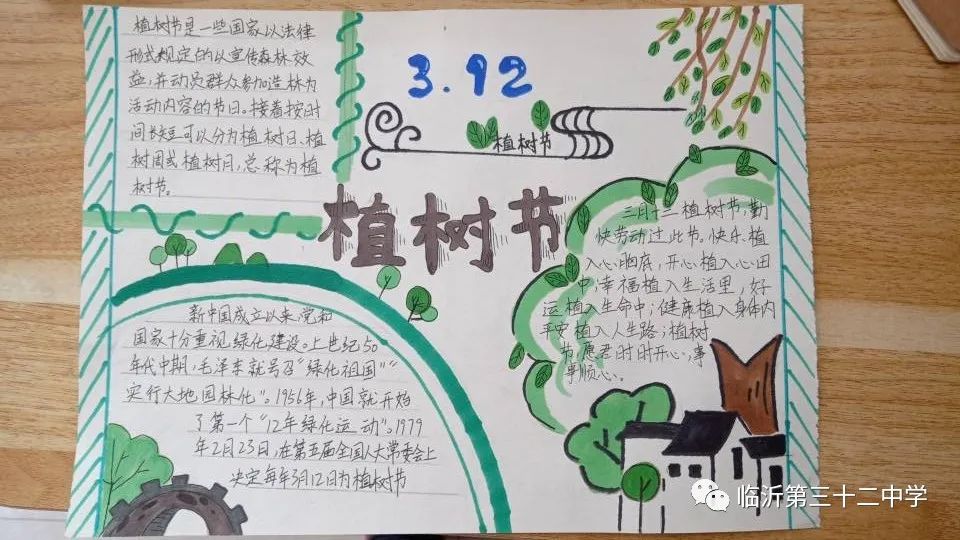 植树节是一些国家以法律
形式规定的以宣传森林效
益,并动员群众参加造林为
活动内容的节日。接着按时
间长短可以分为植树日、植
树周或植树月,总称为植
树节。
3.12
植树节
植树节
三月十二植树节,勤
快劳动过此节。快乐植
入心胸底,开心植入心田
中;幸福植入生活里,好
运植入生命中;健康植入身体内
平安植入人生路;植树
节,愿君时时开心,事
事顺心。
新中国成立以来,党和
国家十分重视绿化建设。上世纪50
年代中期,毛泽东就号召“绿化祖国”“
实行大地园林化”。1956年,中国就开始
了第一个“12年绿化运动”。1979
年2月23日,在第五届全国人大常委会上
决定每年3月12日为植树节
临沂第三十二中学